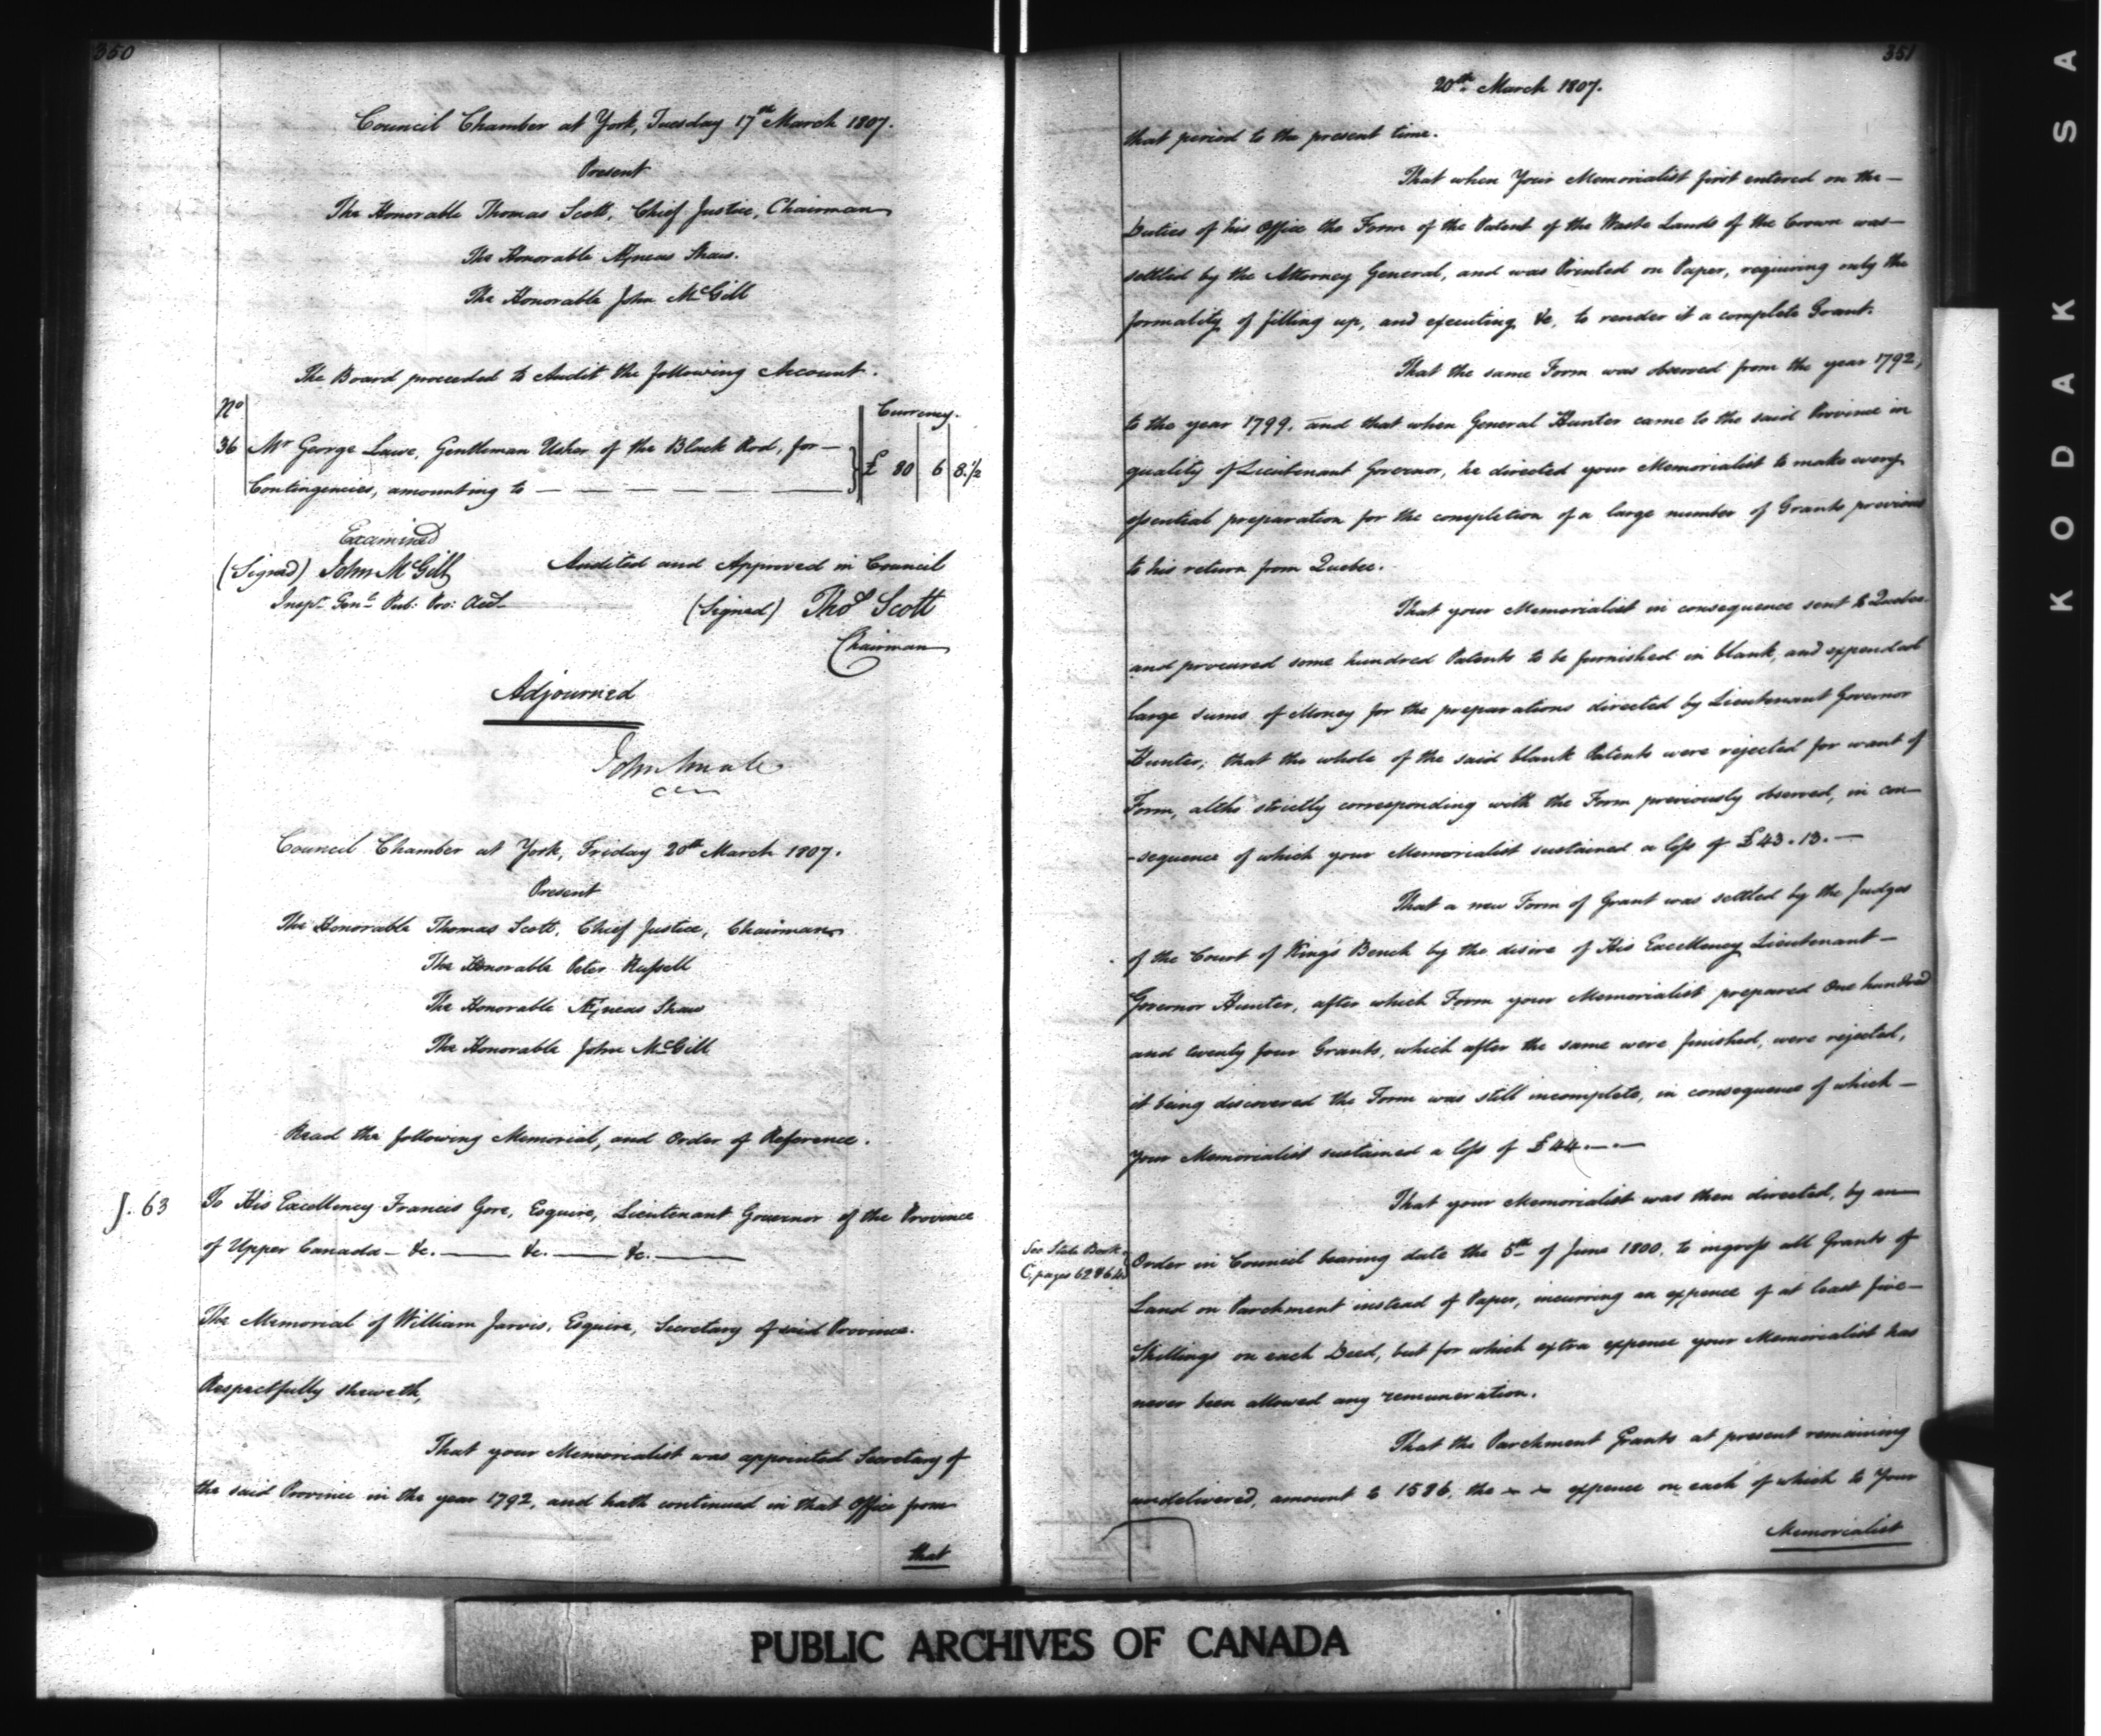 350
Council Chamber at York, Tuesday 17th March 1807.
Present
The Honorable Thomas Scott, Chief Justice, Chairman
The Honorable Æneas Shaw.
The Honorable John McGill
The Board proceeded to Audit the following Account.
No
Currency.
36 Mr George Lawe, Gentleman Usher of the Black Rod, for —
Contingencies, amounting to — — — — — — £ 80 6 8.½
Examined
(Signed) John McGill
Inspr. Genl. Pub: Pro: Acct.
Audited and Approved in Council
(Signed) Thos Scott
Chairman
Adjourned
John Small
Council Chamber at York, Friday 20th March 1807.
Present
The Honorable Thomas Scott, Chief Justice, Chairman
The Honorable Peter Russell
The Honorable Æneas Shaw
The Honorable John McGill
Read the following Memorial, and Order of Reference.
J. 63 To His Excellency Francis Gore, Esquire, Lieutenant Governor of the Province
of Upper Canada — &c. — &c. — &c. —
The Memorial of William Jarvis, Esquire, Secretary of said Province.
Respectfully sheweth,
That your Memorialist was appointed Secretary of
the said Province in the year 1792, and hath continued in that Office from
that
351
20th March 1807.
that period to the present time.
That when Your Memorialist first entered on the —
Duties of his Office the Form of the Patent of the Waste Lands of the Crown was —
settled by the Attorney General, and was Printed on Paper, requiring only the
formality of filling up, and executing &c, to render it a complete Grant.
That the same Form was observed from the year 1792,
to the year 1799. and that when General Hunter came to the said Province in
quality of Lieutenant Governor, he directed your Memorialist to make every
essential preparation for the completion of a large number of Grants previous
to his return from Quebec.
That your Memorialist in consequence sent to Quebec.
and procured some hundred Patents to be furnished in blank, and expended
large sums of Money for the preparations directed by Lieutenant Governor
Hunter; that the whole of the said blank Patents were rejected for want of
Form, altho' strictly corresponding with the Form previously observed, in con-
-sequence of which your Memorialist sustained a loss of £43.13.—
That a new Form of Grant was settled by the Judges
of the Court of King's Bench by the desire of His Excellency Lieutenant —
Governor Hunter, after which Form your Memorialist prepared One hundred
and twenty four Grants, which after the same were finished, were rejected,
it being discovered the Form was still incomplete, in consequence of which —
your Memorialist sustained a loss of £44.—.—
That your Memorialist was then directed, by an
See State Book
C, pages 62 & 64
Order in Council bearing date the 5th of June 1800, to ingross all Grants of
Land on Parchment instead of Paper, incurring an expence of at least five —
Shillings on each Deed, but for which extra expence your Memorialist has
never been allowed any remuneration.
That the Parchment Grants at present remaining
undelivered, amount to 1586, the expence on each of which to Your
Memorialist
PUBLIC ARCHIVES OF CANADA
KODAK SA